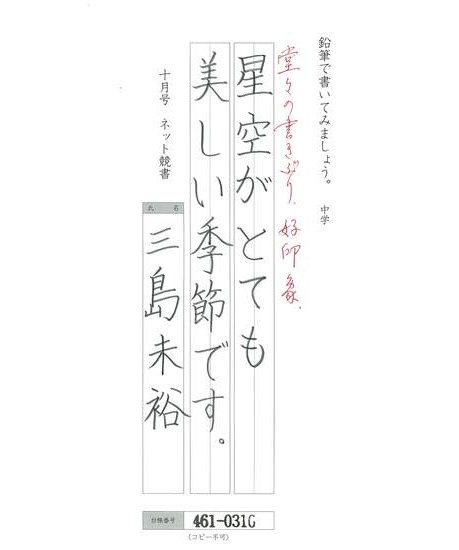 鉛筆で書いてみましょう。 中学
堂々の書きぶり、好印象、
星空がとても
美しい季節です。
十月号 ネット競書
氏名
三島未裕
台帳番号 461-0310
(コピー不可)